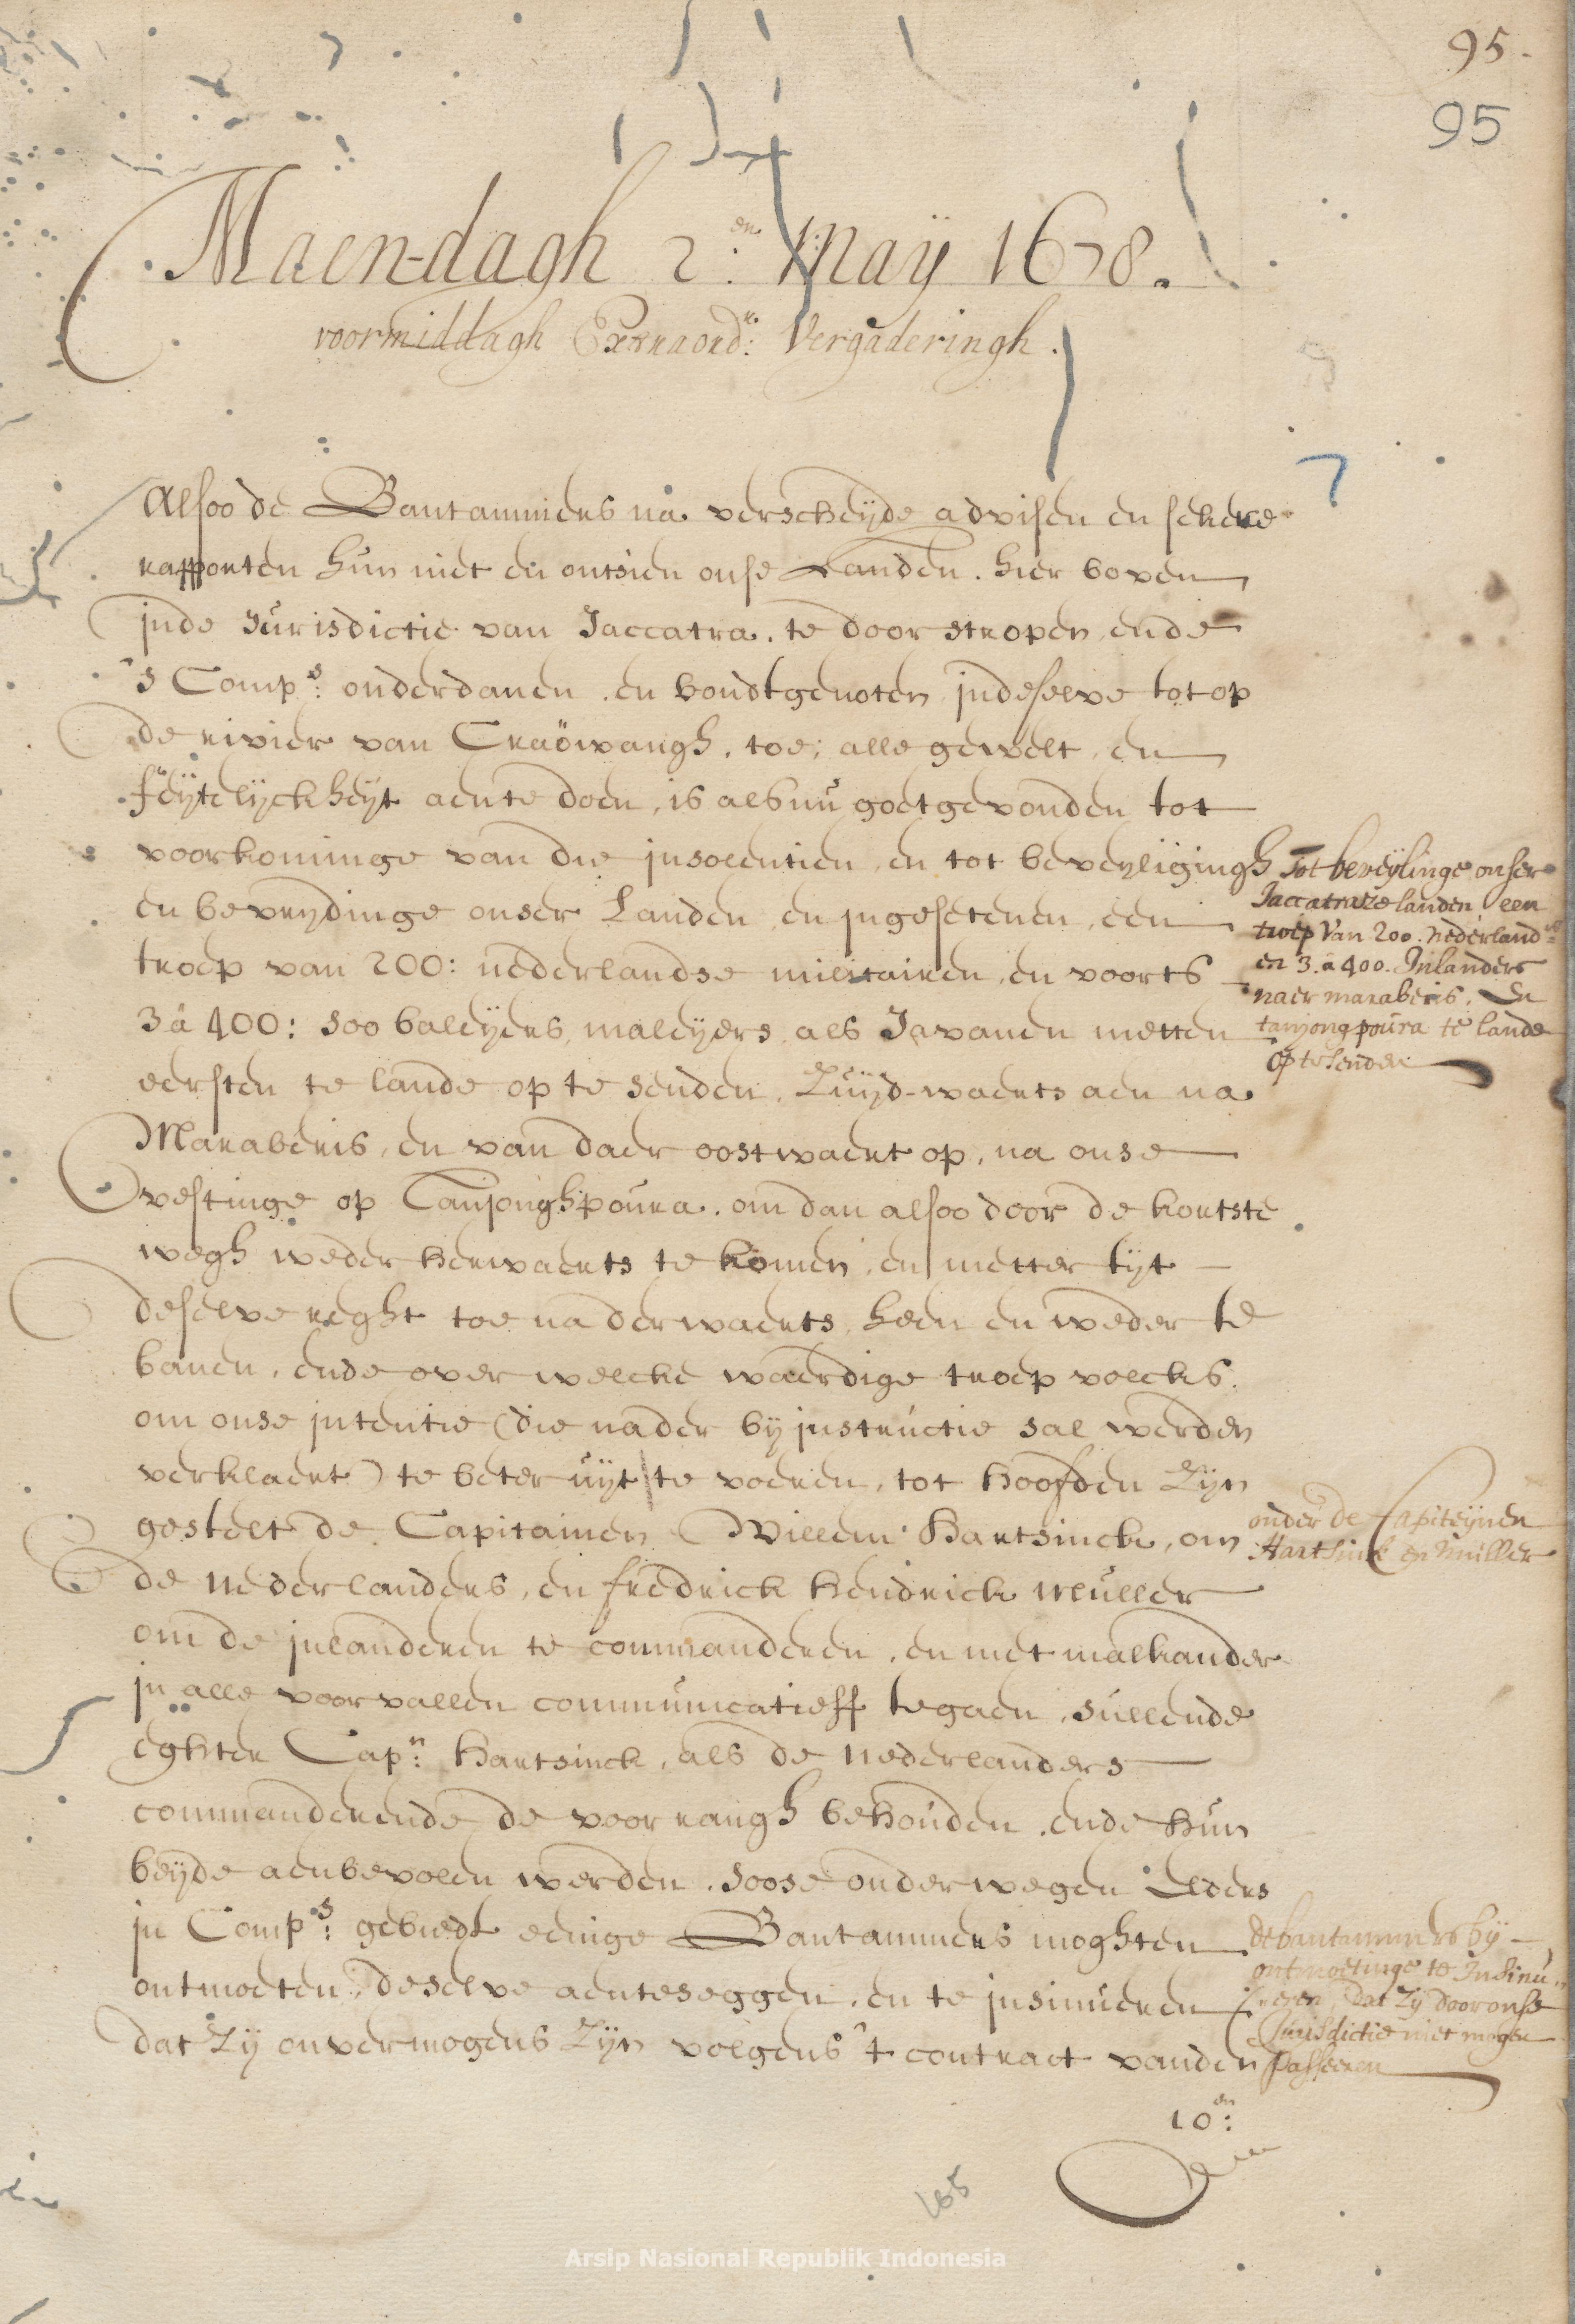 95.
95
Maendagh 2.en Maÿ 1678.
voormiddagh Extraord.e: Vergaderingh.
Alsoo de Bantammers na verscheÿde advisen en sekere
rapporten hun niet en ontsien onse Landen hier boven
inde Jurisdictie van Jaccatra, te doorstropen, ende
's Comp:s onderdanen en bondtgenoten indeselve tot op
de rivier van Craöwangh, toe, alle gewelt, en
feÿtelÿckheÿt aente doen, is als nu goetgevonden tot
voorkominge van die insolentien, en tot beveyligingh
en bevrydinge onser Landen, en ingesetenen, een
troep van 200: nederlandse militairen, en voorts
3 â 400: soo baleÿers, maleÿers, als Javanen metten
eersten te lande op te senden, Zuÿd-waerts aen na
Maraberis, en van daer oostwaert op, na onse
vestinge op Tanjonghpoura, om dan alsoo door de kortste
wegh weder herwaerts te komen, en metter tÿt
deselve reght toe na derwaerts, heen en weder te
banen, ende over welcke waerdige troep volcks,
om onse intentie (die nader bÿ instructie sal werden
verklaert) te beter uÿt te voeren, tot hoofden Zÿn
gestelt de Capitainen Willem Hartsinck, om
de Nederlanders, en fredrick hendrick Muller
om de inlanderen te commanderen, en met malkander
in alle voorvallen communicatieff te gaen, sullende
eghter Cap:n Hartsinck, als de Nederlanders
commanderende de voorrangh behouden, ende hun
beÿde aenbevolen werden, soose onderwegen Elders
in Comp:s gebiedt eenige Bantammers moghten
ontmoeten, deselve aenteseggen, en te insinueren
dat Zÿ onvermogens Zÿn volgens 't contract vanden
10:en
Tot beveÿlinge onser
Jaccatraze landen een
troep Van 200. nederland:rs
en 3. â 400. Inlanders
naer maraberis, En
tanjongpoura te lande
op te senden
onder de Capiteÿnen
Hartsink en Muller
de bantammers bÿ
ontmoetinge te Insinu-
eren, dat Zÿ door onse
Jurisdictie niet mogen
passeeren
165
Arsip Nasional Republik Indonesia